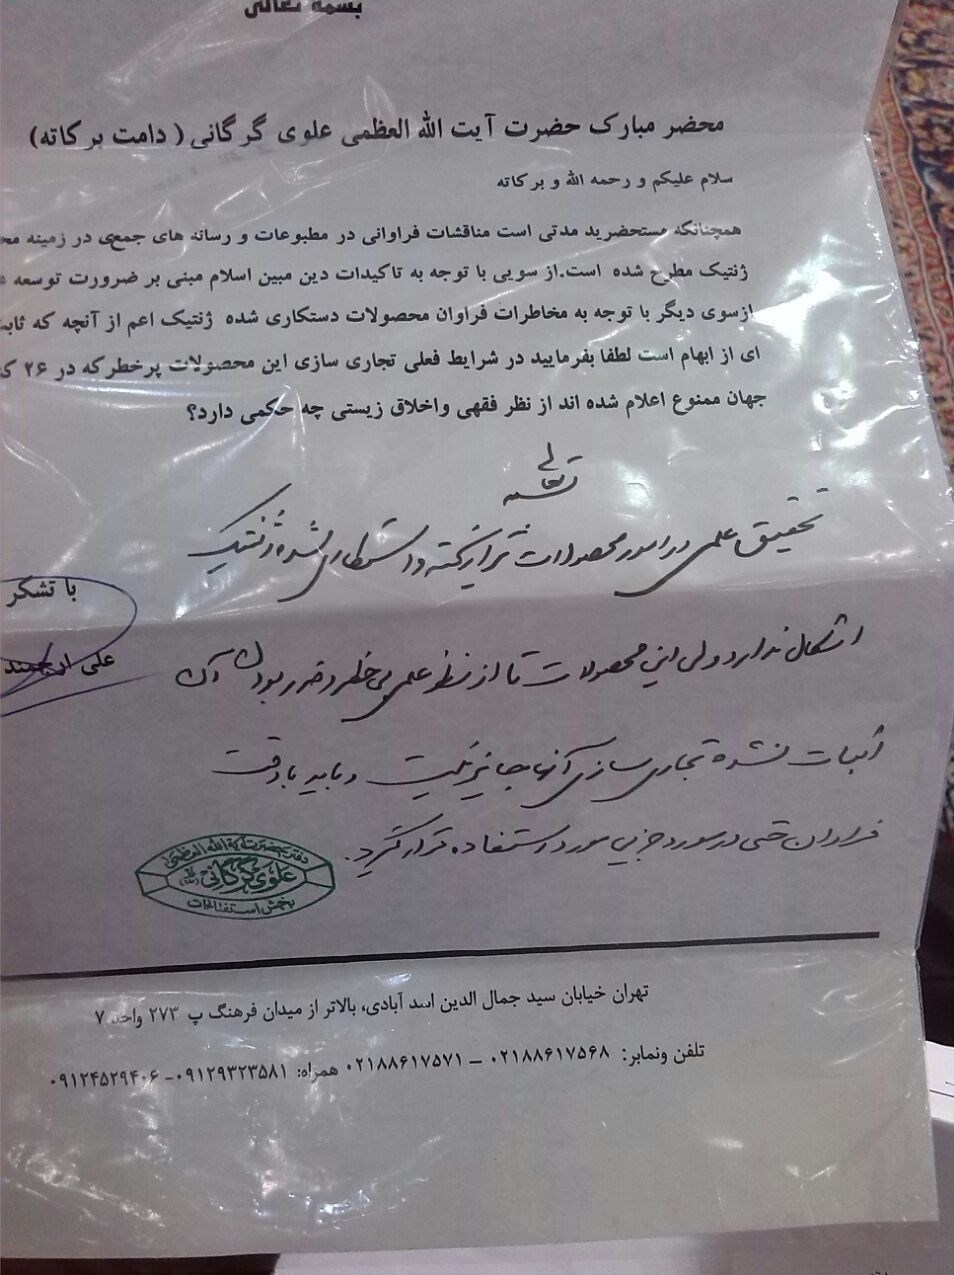 بسمه تعالی
محضر مبارک حضرت آیت الله العظمی علوی گرگانی ( دامت برکاته)
سلام علیکم و رحمه الله و برکاته
همچنانکه مستحضرید مدتی است مناقشات فراوانی در مطبوعات و رسانه های جمعی در زمینه
ژنتیک مطرح شده است.از سویی با توجه به تاکیدات دین مبین اسلام مبنی بر ضرورت توسعه
ازسوی دیگر با توجه به مخاطرات فراوان محصولات دستکاری شده ژنتیک اعم از آنچه که
ای از ابهام است لطفا بفرمایید در شرایط فعلی تجاری سازی این محصولات پرخطرکه در ۲۶
جهان ممنوع اعلام شده اند از نظر فقهی واخلاق زیستی چه حکمی دارد؟
بسمه تعالی
تحقیق علمی در امور محصولات تراریخته و دستکاری شده ژنتیک
اشکال ندارد ولی این محصولات تا از نظر علمی بی خطر و ضرر بودن آن
اثبات نشده تجاری سازی آنها جایز نیست و باید با دقت
فراوان حتی در مورد جزیی مورد استفاده قرار گیرد.
با تشکر
علی
دفتر حضرت آیة الله العظمی
علوی گرگانی
بخش استفتائات
تهران خیابان سید جمال الدین اسد آبادی، بالاتر از میدان فرهنگ پ ۲۷۳ واحد ۷
تلفن ونمابر: ۰۲۱۸۸۶۱۷۵۶۸ – ۰۲۱۸۸۶۱۷۵۷۱ همراه: ۰۹۱۲۹۳۲۳۵۸۱- ۰۹۱۲۴۵۲۹۴۰۶